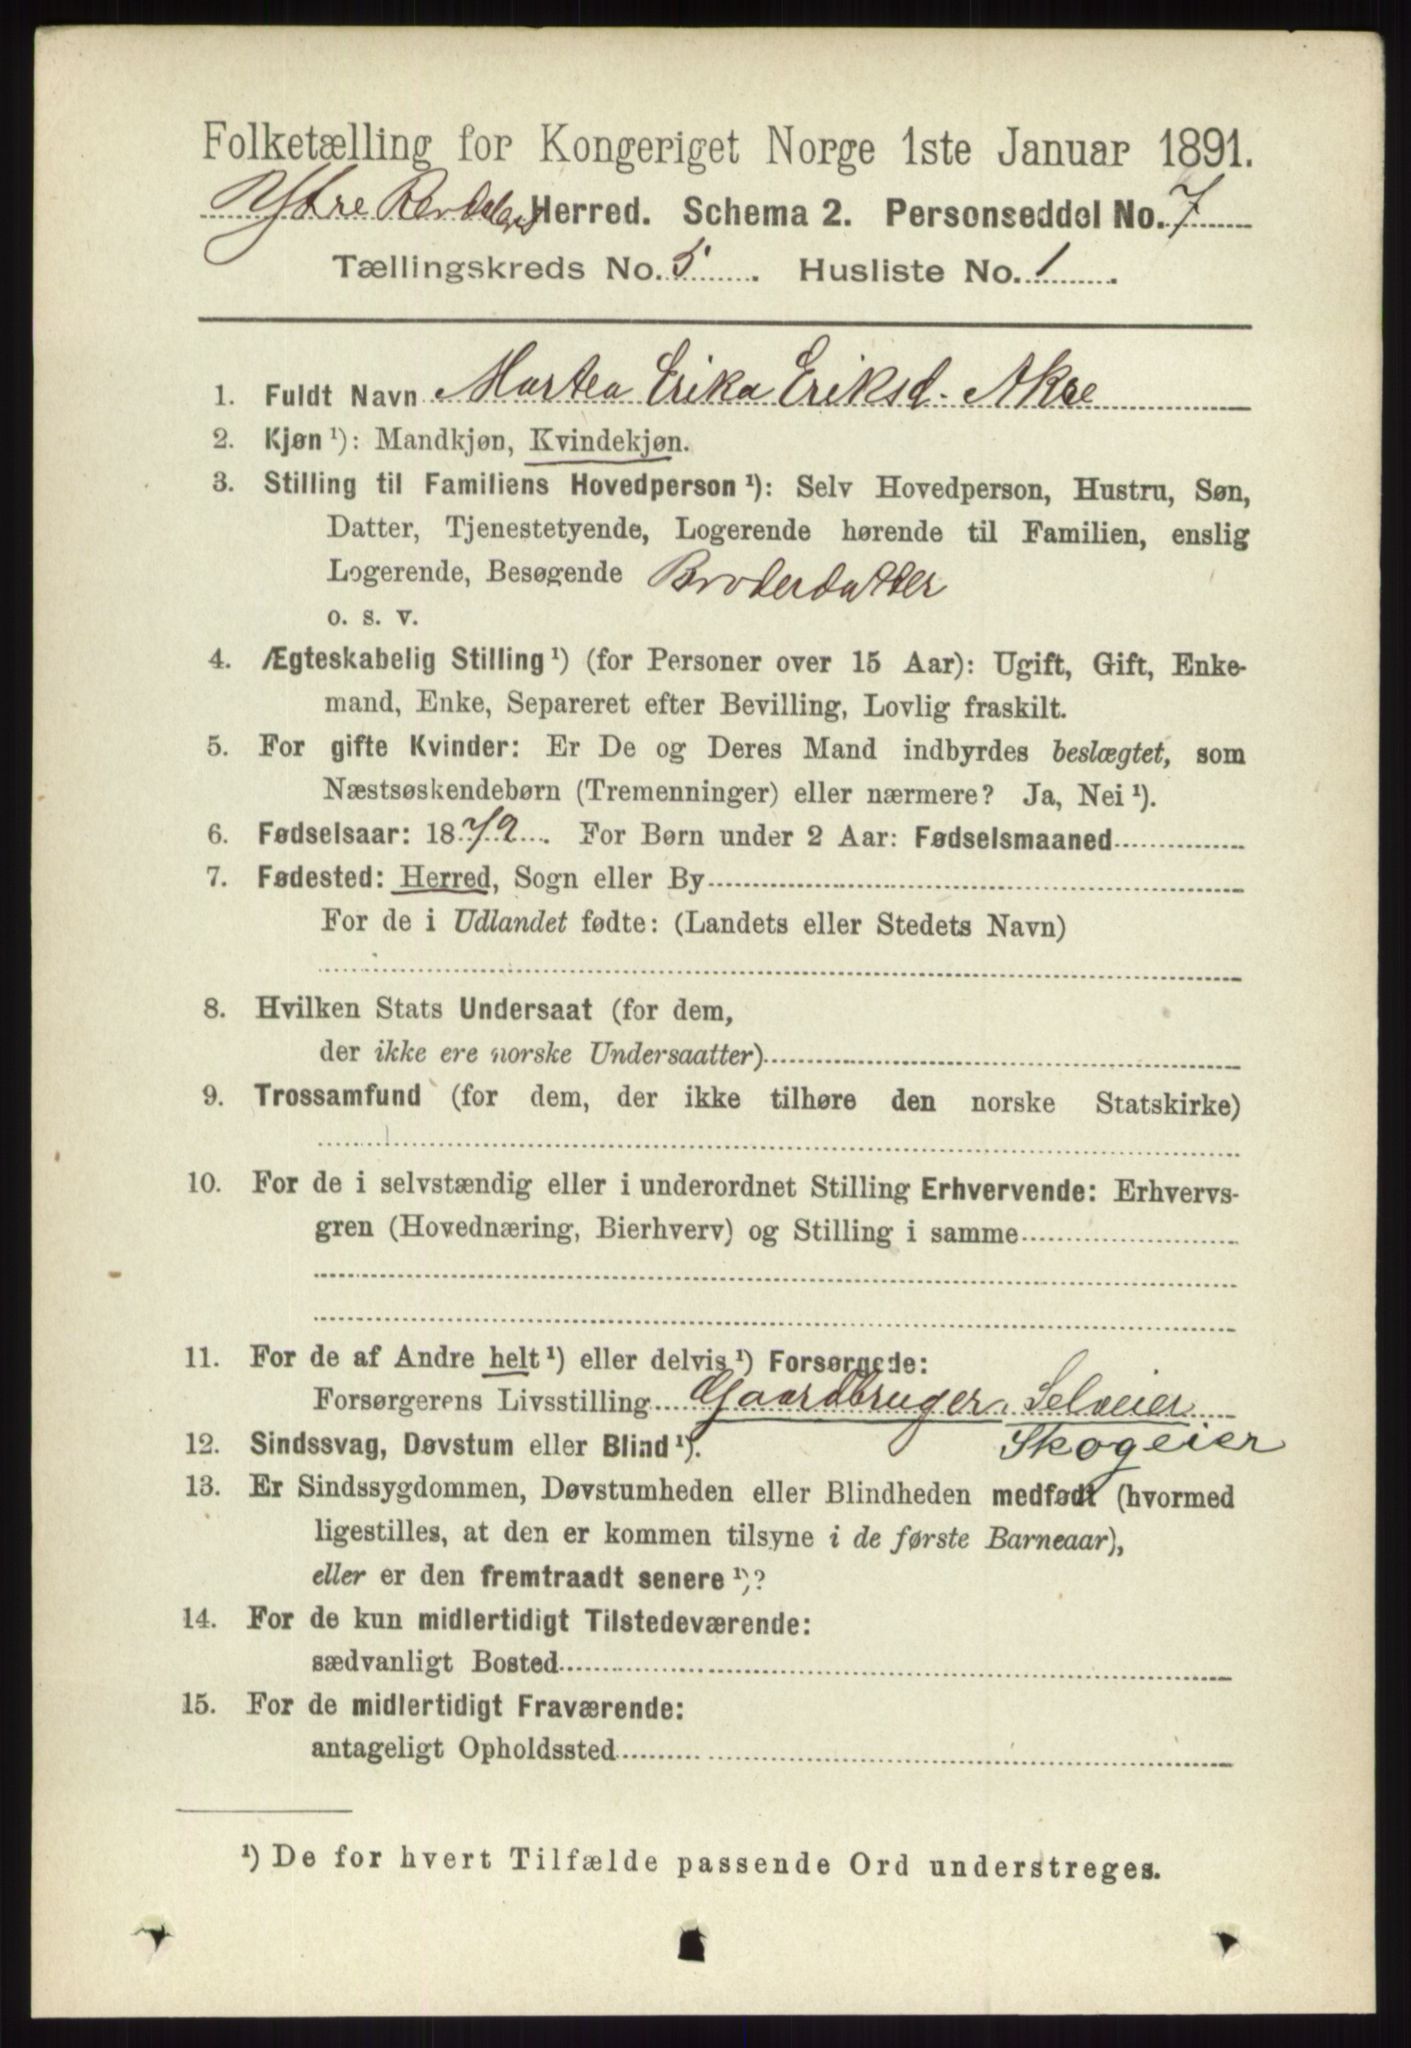 Folketælling for Kongeriget Norge 1ste Januar 1891.
Ytre Rendalens Herred. Schema 2. Personseddel No. 7
Tællingskreds No. 5. Husliste No. 1.
1. Fuldt Navn Martea Erika Eriksd. Akre
2. Kjøn ¹): Mandkjøn, Kvindekjøn.
3. Stilling til Familiens Hovedperson ¹): Selv Hovedperson, Hustru, Søn,
Datter, Tjenestetyende, Logerende hørende til Familien, enslig
Logerende, Besøgende Broderdatter
o. s. v.
4. Ægteskabelig Stilling ¹) (for Personer over 15 Aar): Ugift, Gift, Enke-
mand, Enke, Separeret efter Bevilling, Lovlig fraskilt.
5. For gifte Kvinder: Er De og Deres Mand indbyrdes beslægtet, som
Næstsøskendebørn (Tremenninger) eller nærmere? Ja, Nei ¹).
6. Fødselsaar: 1872. For Børn under 2 Aar: Fødselsmaaned
7. Fødested: Herred, Sogn eller By
For de i Udlandet fødte: (Landets eller Stedets Navn)
8. Hvilken Stats Undersaat (for dem,
der ikke ere norske Undersaatter)
9. Trossamfund (for dem, der ikke tilhøre den norske Statskirke)
10. For de i selvstændig eller i underordnet Stilling Erhvervende: Erhvervs-
gren (Hovednæring, Bierhverv) og Stilling i samme
11. For de af Andre helt ¹) eller delvis ¹) Forsørgede:
Forsørgerens Livsstilling Gaardbruger, Selveier
12. Sindssvag, Døvstum eller Blind ¹). Skogeier
13. Er Sindssygdommen, Døvstumheden eller Blindheden medfødt (hvormed
ligestilles, at den er kommen tilsyne i de første Barneaar),
eller er den fremtraadt senere ¹)?
14. For de kun midlertidigt Tilstedeværende:
sædvanligt Bosted
15. For de midlertidigt Fraværende:
antageligt Opholdssted
¹) De for hvert Tilfælde passende Ord understreges.